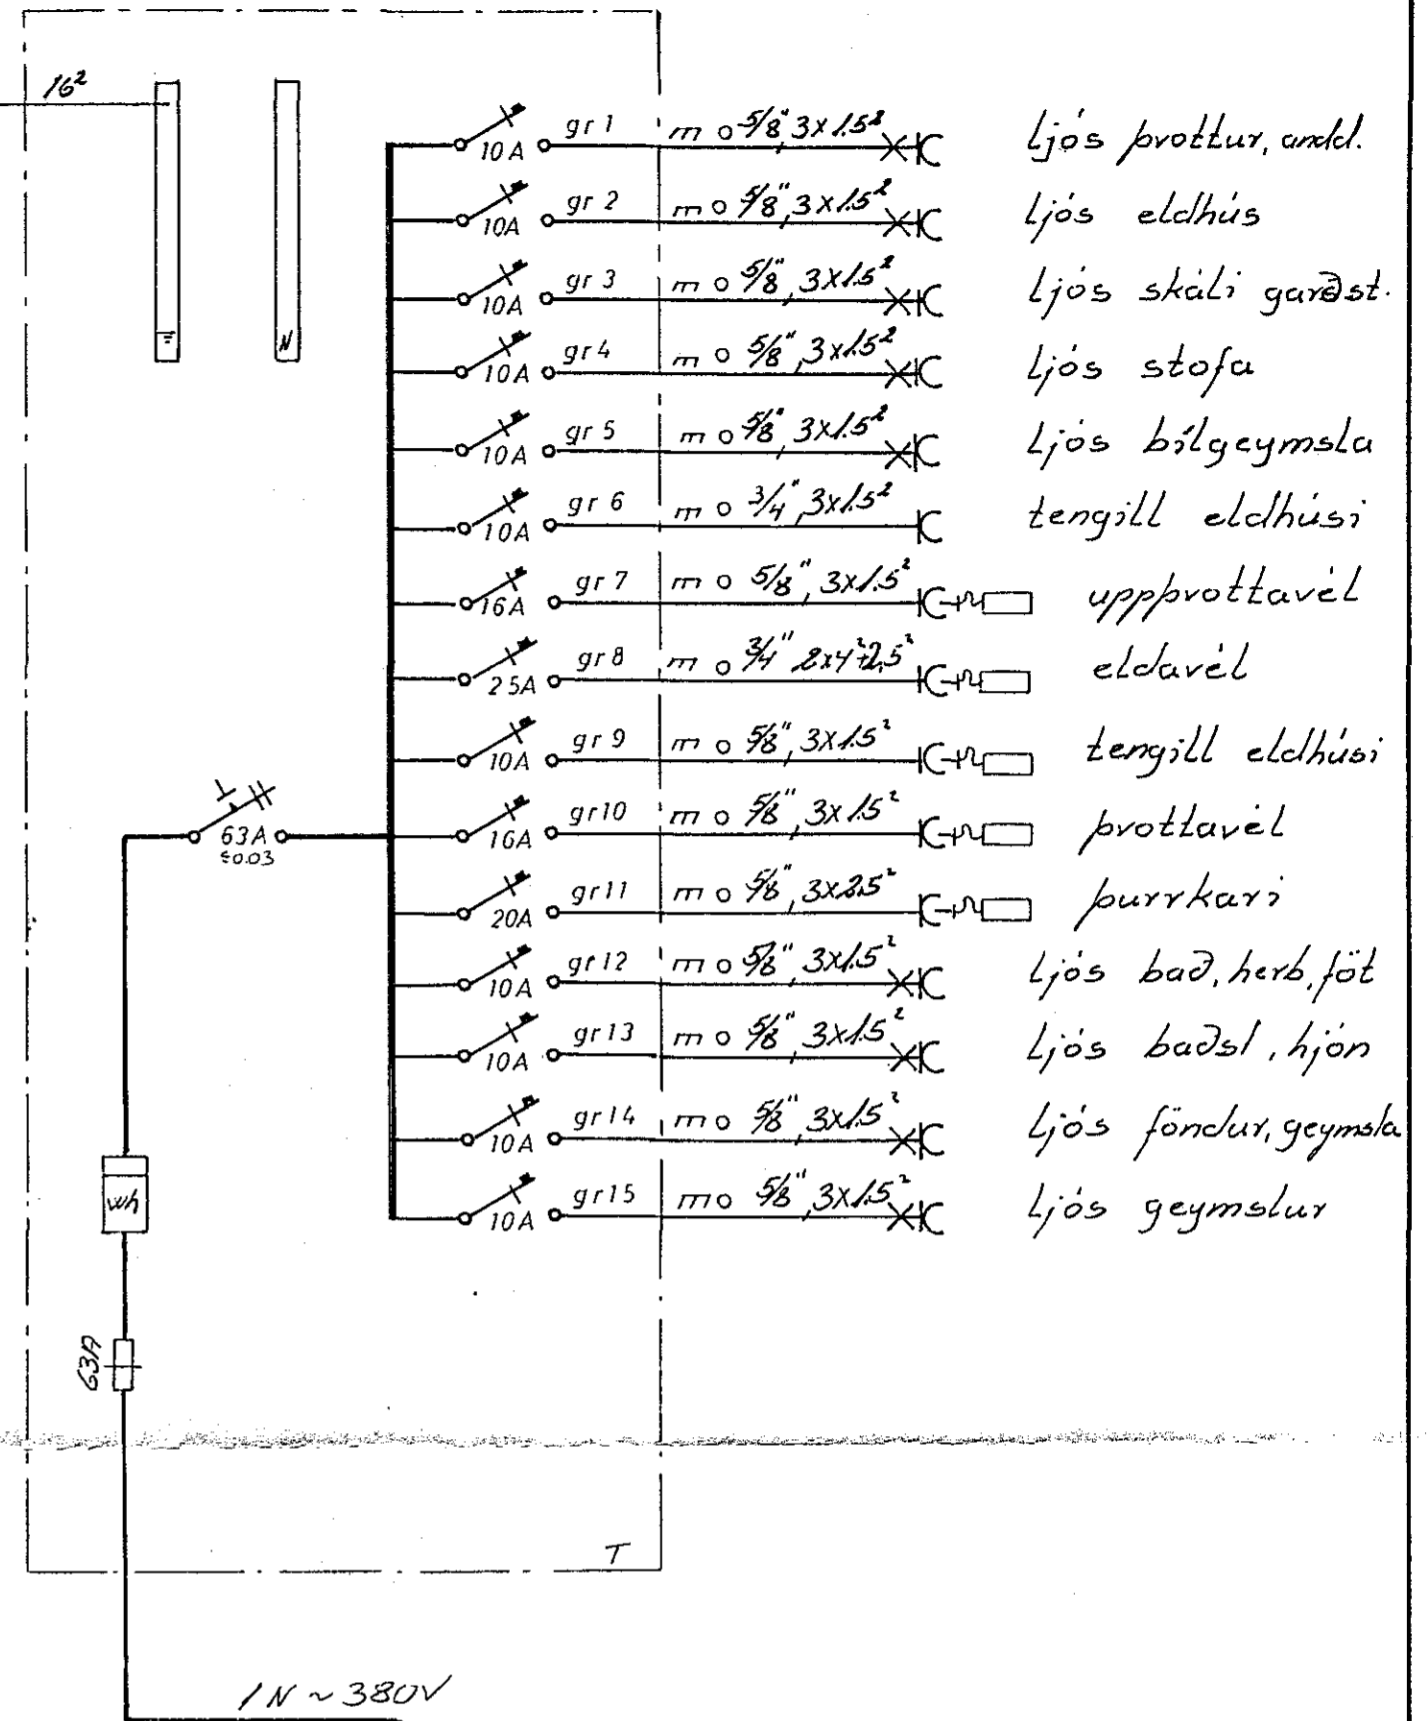 16²
10A gr 1 m o 5/8" 3x1.5² ljós þvottur, andd.
10A gr 2 m o 5/8", 3x1.5² ljós eldhús
10A gr 3 m o 5/8", 3x1.5² ljós skáli garðst.
10A gr 4 m o 5/8", 3x1.5² ljós stofa
10A gr 5 m o 5/8" 3x1.5² ljós bílgeymsla
10A gr 6 m o 3/4", 3x1.5² tengill eldhúsi
16A gr 7 m o 5/8", 3x1.5² uppþvottavél
25A gr 8 m o 3/4" 2x4²+2,5² eldavél
10A gr 9 m o 5/8", 3x1.5² tengill eldhúsi
16A gr10 m o 5/8", 3x1.5² þvottavél
20A gr11 m o 5/8", 3x2.5² þurrkari
10A gr12 m o 5/8", 3x1.5² ljós bað, herb, föt
10A gr13 m o 5/8", 3x1.5² ljós baðsl, hjón
10A gr14 m o 5/8", 3x1.5² ljós föndur, geymsla
10A gr15 m o 5/8", 3x1.5² ljós geymslur
N
63A
≤0.03
Wh
63A
T
1N ~ 380V